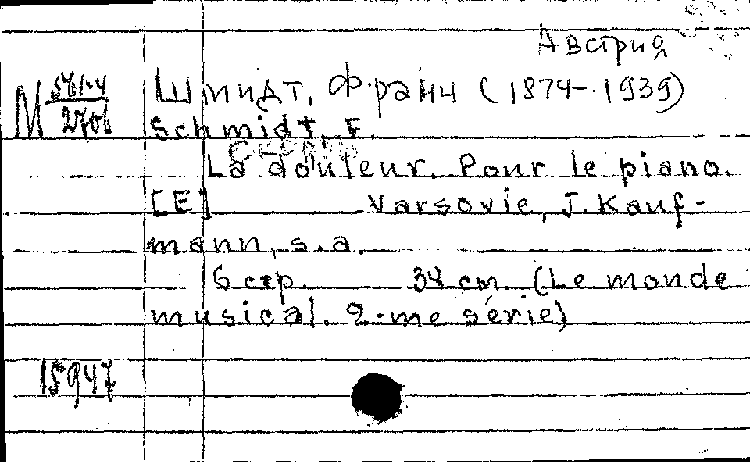 Австрия
М Шмидт, Франц (1874-1939)
Schmidt, F.
La douleur. Pour le piano.
[E] Varsovie, J. Kauf-
mann, s.a.
6 стр. 34 cm. (Le monde
musical. 2-me série)
15947